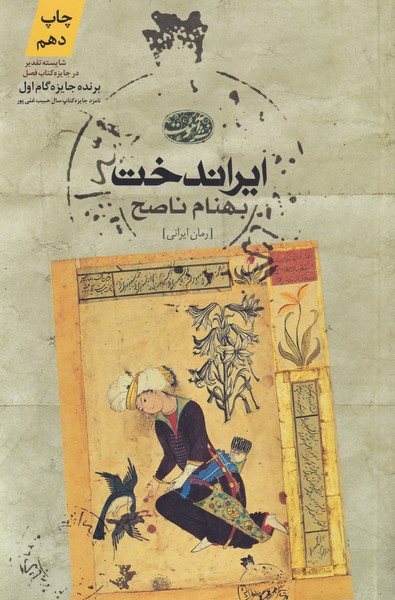 چاپ
دهم
شایسته تقدیر
در جایزه کتاب فصل
برنده جایزه گام اول
نامزد جایزه کتاب سال حبیب غنی پور
ایراندخت
بهنام ناصح
[رمان ایرانی]